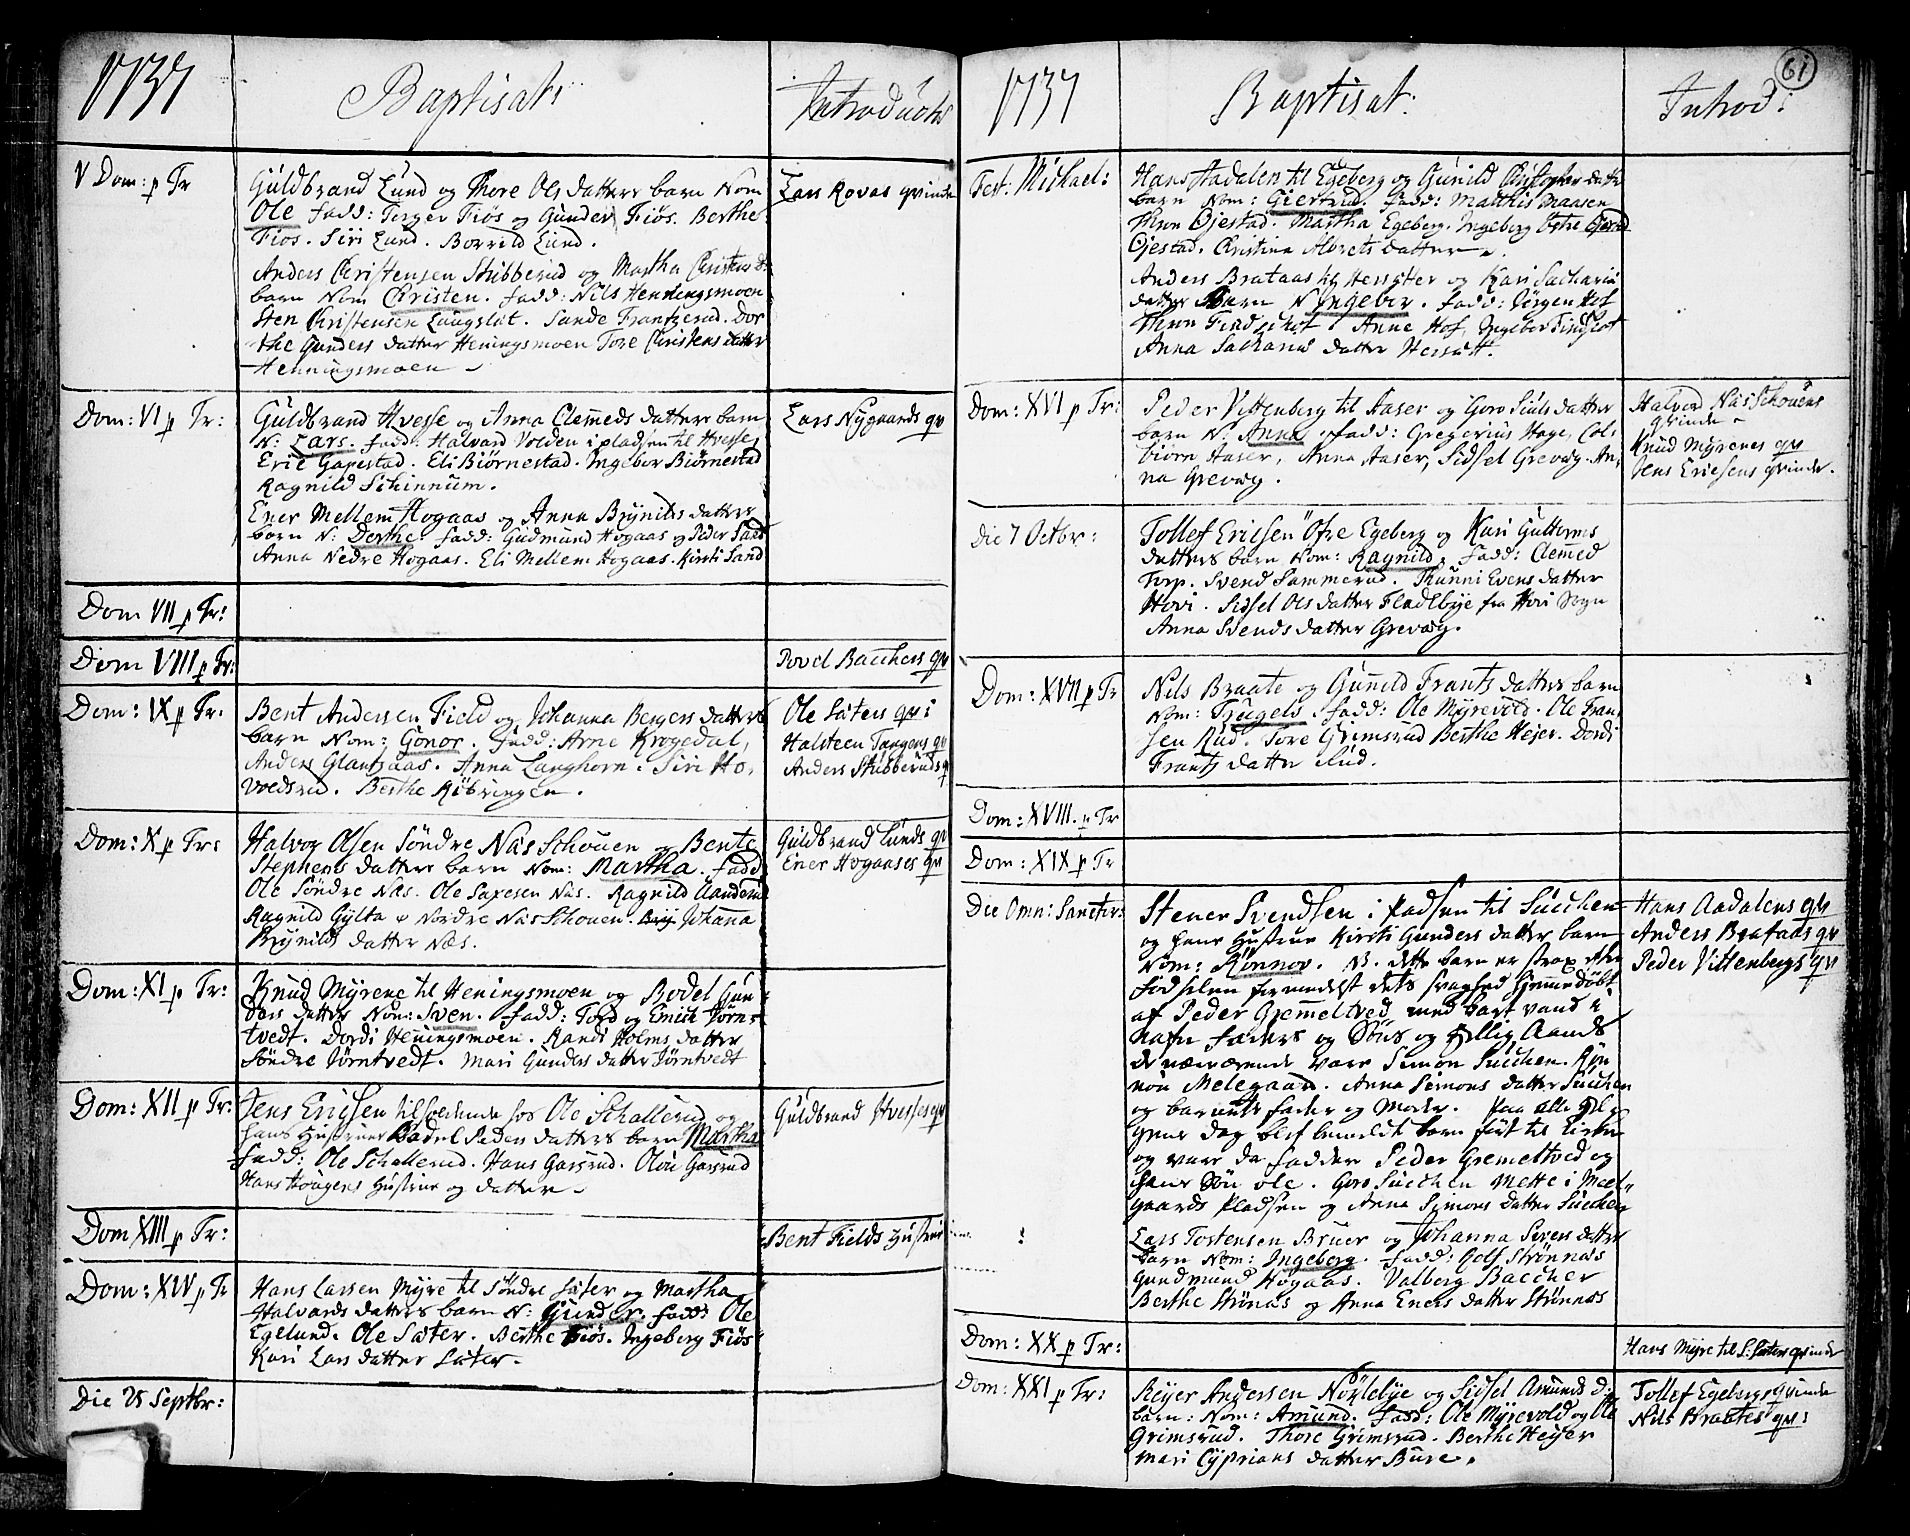 1737
Baptisat:
Introducta
V Dom: p Tr
Guldbrand Lund og Thore Ols datters barn Nom
Ole fadd: Torger Fiøs og Gunder Fiøs. Berthe
Fiøs. Siri Lund. Borrild Lund.
Anders Christensen Stubberud og Martha Christens d:
barn Nom Christen. fadd: Nils Henningsmoen
Sten Christensen Laugslat. Sande Frantzerud. Dor
the Gunders datter Heningsmoen Tore Christens datter
Henningsmoen
Lars Rovas qvinde
Dom: VI p Tr:
Guldbrand Hvesse og Anna Clemeds datters barn
N: Lars. fadd: Halvard Volden i pladsen til Hvesse
Eric Gapestad. Eli Biørnestad. Ingebor Biørnestad
Ragnild Schinnum.
Ener Mellem Hogaas og Anna Brynilds datters
barn N: Dorthe fadd: Gudmund Hogaas og Peder Sand
Anna Nedre Hogaas. Eli Mellem Hogaas. Kirsti Sand
Lars Nygaards qv
Dom VII p Tr:
Dom VIII p Tr:
Povel Bacchers qv
Dom: IX p Tr:
Bent Andersen Field og Johanna Bergers datters
barn Nom: Gonor. fadd: Arne Krogedal,
Anders Glantzaas. Anna Langhorn. Siri Ho,
voedsrud. Berthe Kibringen.
Ole Sæters qv:
Halsteen Tangens qv
Anders Stubberuds q
Dom: X p Tr:
Halvor Olsen Søndre Næs Schouen og Bente
Stephens datters barn Nom: Martha. fadd
Ole Søndre Næs. Ole Saxesen Næs. Ragnild Aanderud
Ragnild Gylta Nordre Næs Schouen. Johana
Brynilds datter Næs.
Guldbrand Lunds qv
Ener Hogaases qv
Dom: XI p Tr:
Knud Myrene til Heningsmoen og Bodel Gun
ders datters Nom: Sven. fadd: Tord og Enist Jørn-
tvedt. Dordi Heningsmoen. Randi Holms datter
Søndre Jørntvedt. Mari Gunders datter Jørntvedt
Dom: XII p Tr:
Jens Ericsen tilholdende hos Ole Schallerud og
hans Hustrues Bodel Peders datters barn Martha
fadd: Ole Schallerud. Hans Garsrud. Olou Garsrud
Hans Hougens Hustrue og datter
Guldbrand Hvesses qv
Dom XIII p Tr:
Bent Fields Hustrue
Dom: XIV p Tr
Hans Larsen Myre til Søndre Sæter og Martha
Halvards datters barn N: Gunder. fadd: Ole
Egelund. Ole Sæter. Berthe Fiøs. Ingeborg Fiøs
Kari Lars datter Sæter.
Die 25 Septbr:
61
1737
Baptisat:
Introd:
Fest: Michael:
Hans Aadalen til Egeberg og Gunild Christopher datte
barn Nom: Giertrud. fadd: Matthis Maasen
Thron Ojestad. Martha Egeberg. Ingeborg Østre
Ojestad. Christina Albrets datter.
Anders Brataas til Hersætter og Kari Sacharia
datters Barn N Ingebor. fadd: Jørgen Hof
Thron Finds lhof. Anne Hof, Ingebor Findslot
Anna Sacharias datter Hersætt.
Dom: XVI p Tr:
Peder Vittenberg til Aaser og Goro Siuls datter
barn N: Anna. fadd: Gregorius Hoge, Col-
biørn Aaser, Anna Aaser, Sidsel Grevæg. An,
na Grevæg.
Halvord Næs Schouens
qvinde
Knud Myrenes qv
Jens Ericsens qvinde.
Die 7 Octbr:
Tollef Ericsen Øfre Egeberg og Kari Guttorms
datters barn Nom: Ragnild. fadd: Clemed
Torp. Svend Sammerud. Thunni Evens datter
Hovi. Sidsel Ols datter Fladebye fra Hovi Sogn
Anna Svends datter Grevæg.
Dom: XVII p Tr
Nils Braate og Gunild Frantz datters barn
Nom: Trugels. fadd: Ole Myrevold. Ole Fran,
sen Rud. Tore Grimsrud Berthe Hejer. Dordi
Frantz datter Rud.
Dom: XVIII. p Tr
Dom: XIX p Tr
Die Omn: Sanctor:
Stener Svendsen i Padsen til Succhen
og hans Hustrue Kirsti Gunders datter barn
Nom: Rønnov. N. dette barn er strax efter
fødselen formedelst dets svaghed hjemmedøbt
af Peder Gremeltved med bart vand i
Nafn Faders og Søns og Hellig Aands
de nærværende vare Simon Succhen. Røn
nou Melegaard. Anna Simons datter Succhen
og barnets fader og Moder. Paa alle Hel-
gens dag blef bemeldte barn ført til Kirken
og vare da faddere Peder Gremeltved og
hans Søn Ole. Goro Succhen Mette i Mæl-
gaards Pladsen og Anna Simons datter Succhen
Lars Tostensen Bruer og Johanna Sivers datter
barn Nom: Ingeborg. fadd: Golf Strønnæs
Gundmund Hogaas. Valborg Baccher
Berthe Strønæs og Anna Eners datter Strønnæs
Hans Aadalens qv
Anders Brataas qv
Peder Vittenbergs qv
Dom: XX p Tr:
Hans Myre til S: Sæters qvinde
Dom: XXI p Tr:
Reyer Andersen Nøxlebye og Sidsel Amunds d:
barn: Nom: Amund. fadd: Ole Myrevold og Ole
Grimsrud. Thore Grimsrud. Berthe Heyer
Mari Cyprians datter Bure.
Tollef Egebergs qvinde
Nils Braates qv: